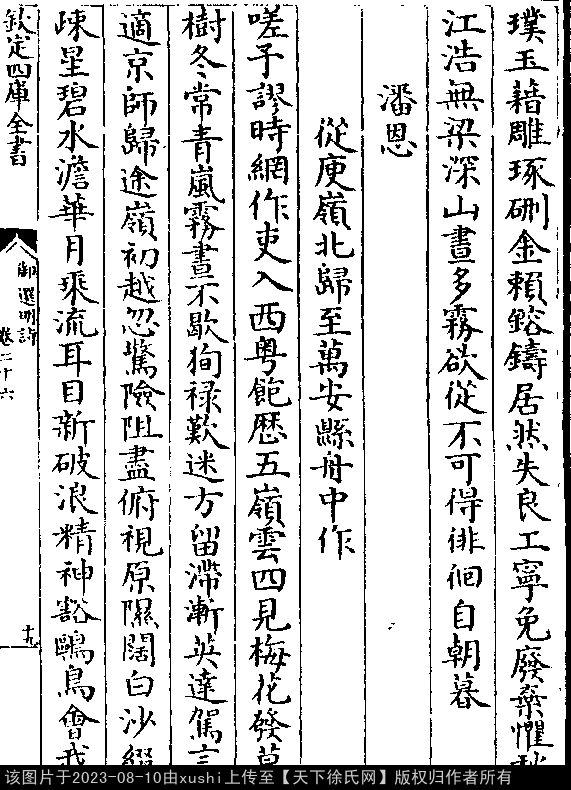 璞玉藉雕琢硎金賴鎔鑄居然失良工寧免廢棄懼
江浩無梁深山晝多霧欲從不可得徘徊自朝暮
潘恩
從庾嶺北歸至萬安縣舟中作
嗟予謬時網作吏入西粤飽歷五嶺雲四見梅花發草
樹冬常青嵐霧晝不歇狥禄歎迷方留滯漸英達駕言
適京師歸途嶺初越忽驚險阻盡俯視原隰闊白沙綴
疎星碧水澹華月乘流耳目新破浪精神豁鷗鳥會我
欽定四庫全書
御選明詩
卷二十六
十九
该图片于2023-08-10由xushi上传至【天下徐氏网】版权归作者所有